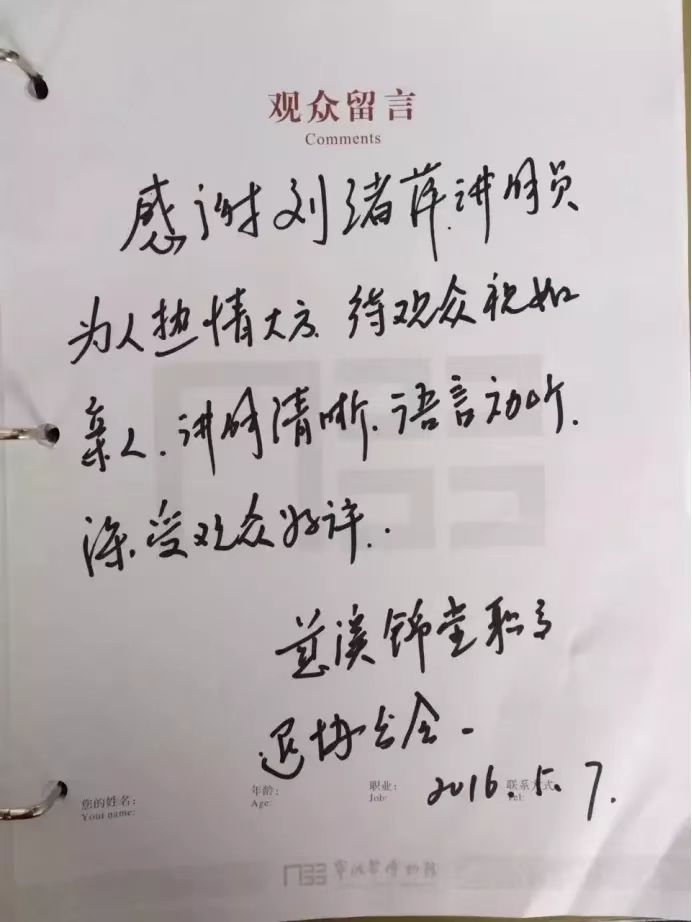 观众留言
Comments
感谢刘绪萍讲解员
为人热情大方.待观众视如
亲人.讲解清晰.语言动听.
深受观众好评..
慈溪锦堂职高
退协分会.
2016.5.7.
您的姓名: 年龄: 职业: 联系方式:
Your name: Age: Job: Tel:
宁波帮博物馆